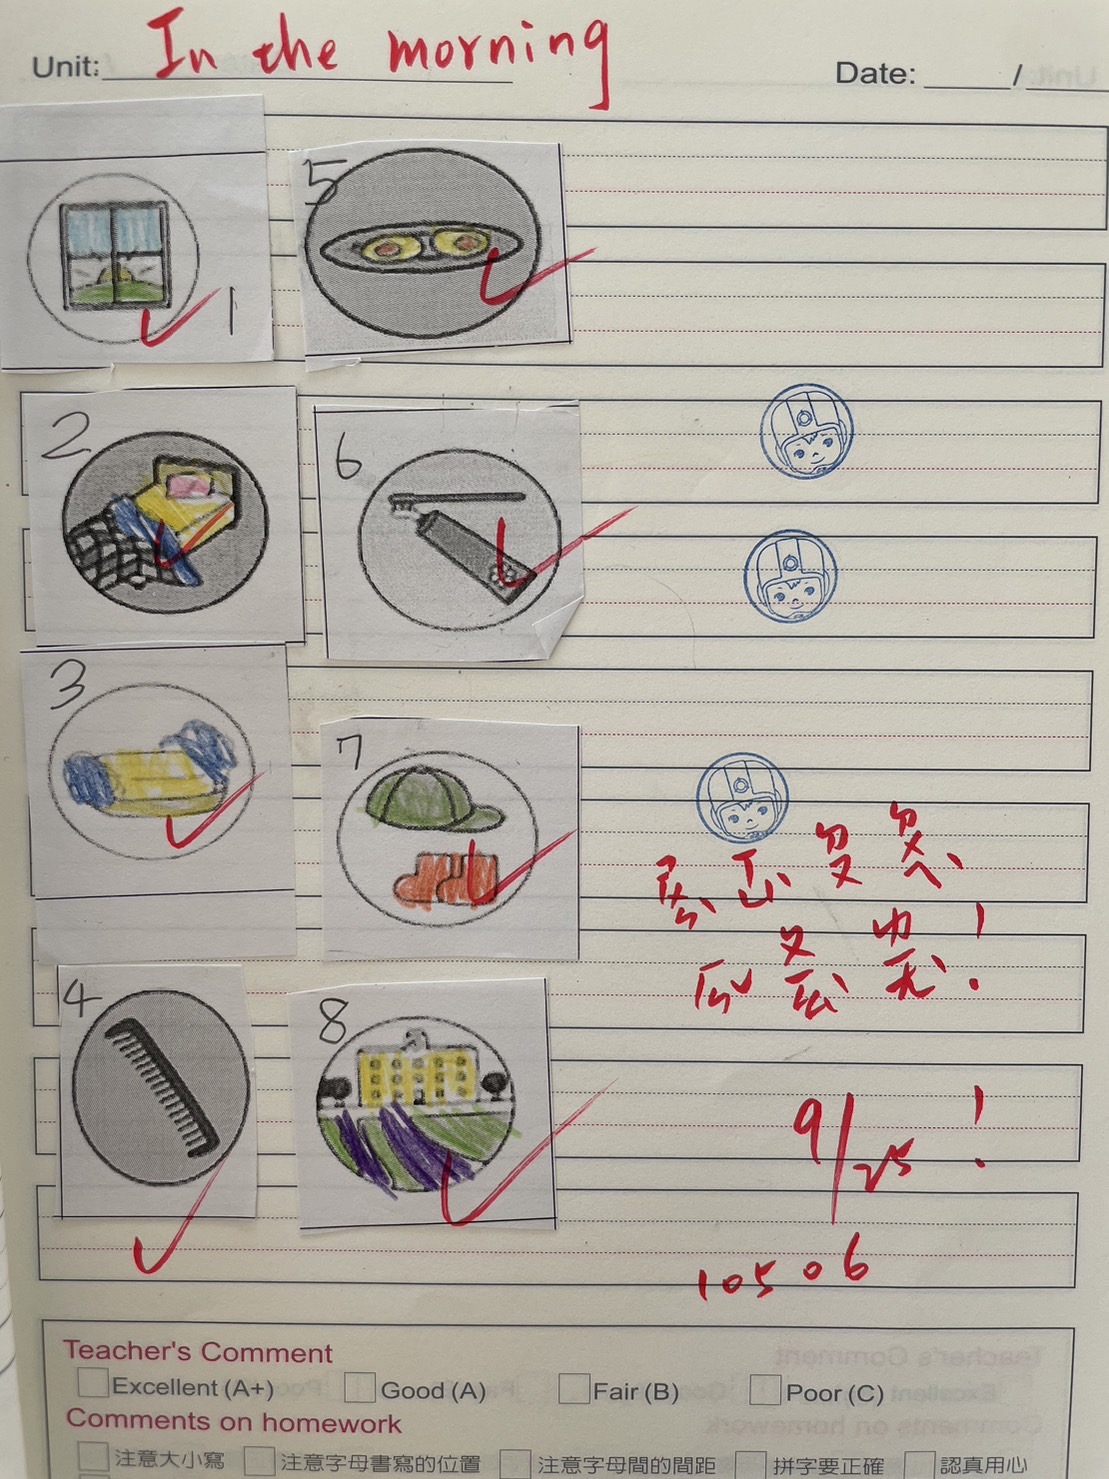 Unit: In the morning
Date: /
1
5
2
6
3
7
4
8
9/25 !
10506
Teacher's Comment
Excellent (A+) Good (A) Fair (B) Poor (C)
Comments on homework
注意大小寫 注意字母書寫的位置 注意字母間的間距 拼字要正確 認真用心